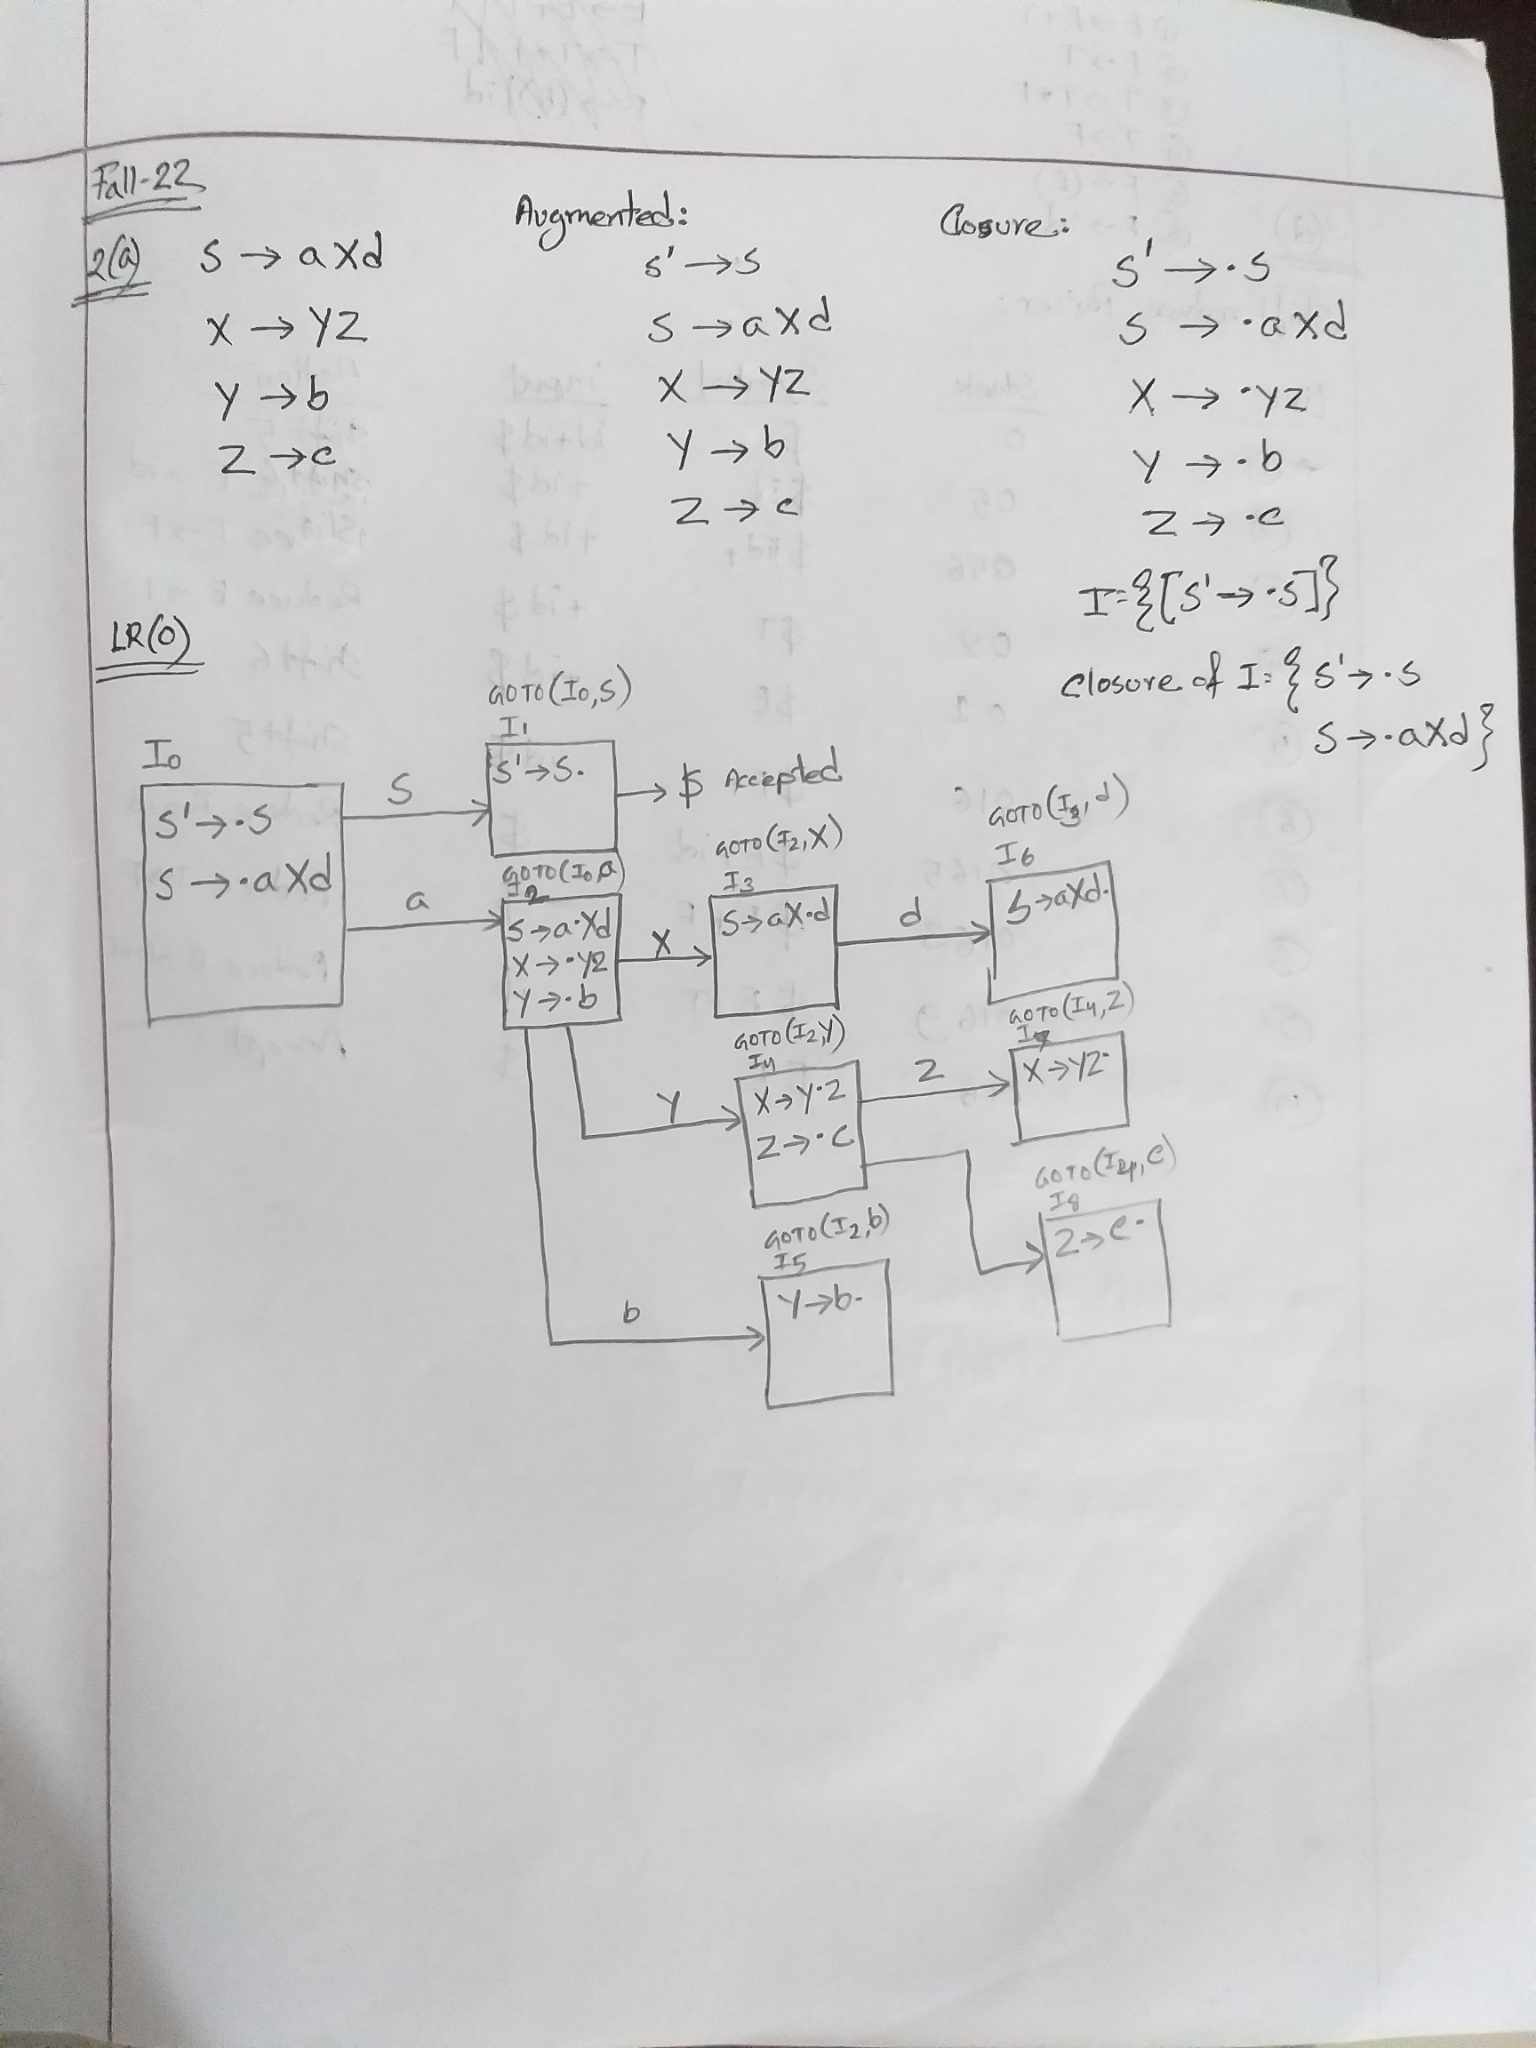 Fall-22
2(a)
S → aXd
X → YZ
Y → b
Z → c
Augmented:
S' → S
S → aXd
X → YZ
Y → b
Z → c
Closure:
S' → ·S
S → ·aXd
X → ·YZ
Y → ·b
Z → ·c
I={[S' → ·S]}
closure of I={ S' → ·S
S → ·aXd}
LR(0)
I0
S' → ·S
S → ·aXd
S
a
GOTO(I0,S)
I1
S' → S·
$ Accepted
GOTO(I0,a)
I2
S → a·Xd
X → ·YZ
Y → ·b
X
GOTO(I2,X)
I3
S → aX·d
d
GOTO(I3,d)
I6
S → aXd·
Y
GOTO(I2,Y)
I4
X → Y·Z
Z → ·c
Z
GOTO(I4,Z)
I7
X → YZ·
GOTO(I4,c)
I8
Z → c·
b
GOTO(I2,b)
I5
Y → b·